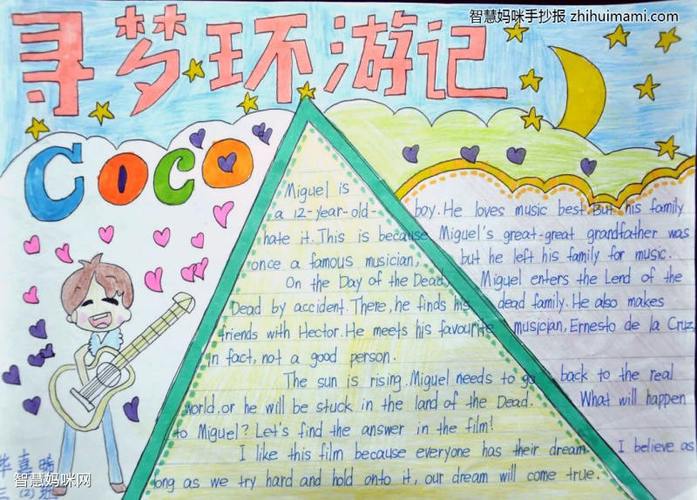 智慧妈咪手抄报 zhihuimami.com
寻梦环游记
COCO
Miguel is
a 12-year-old- boy. He loves music best But his family
hate it. This is because Miguel's great-great grandfather was
once a famous musician, but he left his family for music.
On the Day of the Dead Miguel enters the Lend of the
Dead by accident. There, he finds his dead family. He also makes
friends with Hector. He meets his favourite musician, Ernesto de la Cruz
In fact, not a good person.
The sun is rising. Miguel needs to go back to the real
world, or he will be stuck in the land of the Dead. What will happen
to Miguel? Let's find the answer in the film!
I like this film because everyone has their dream I believe as
long as we try hard and hold onto it, our dream will come true.
智慧妈咪网